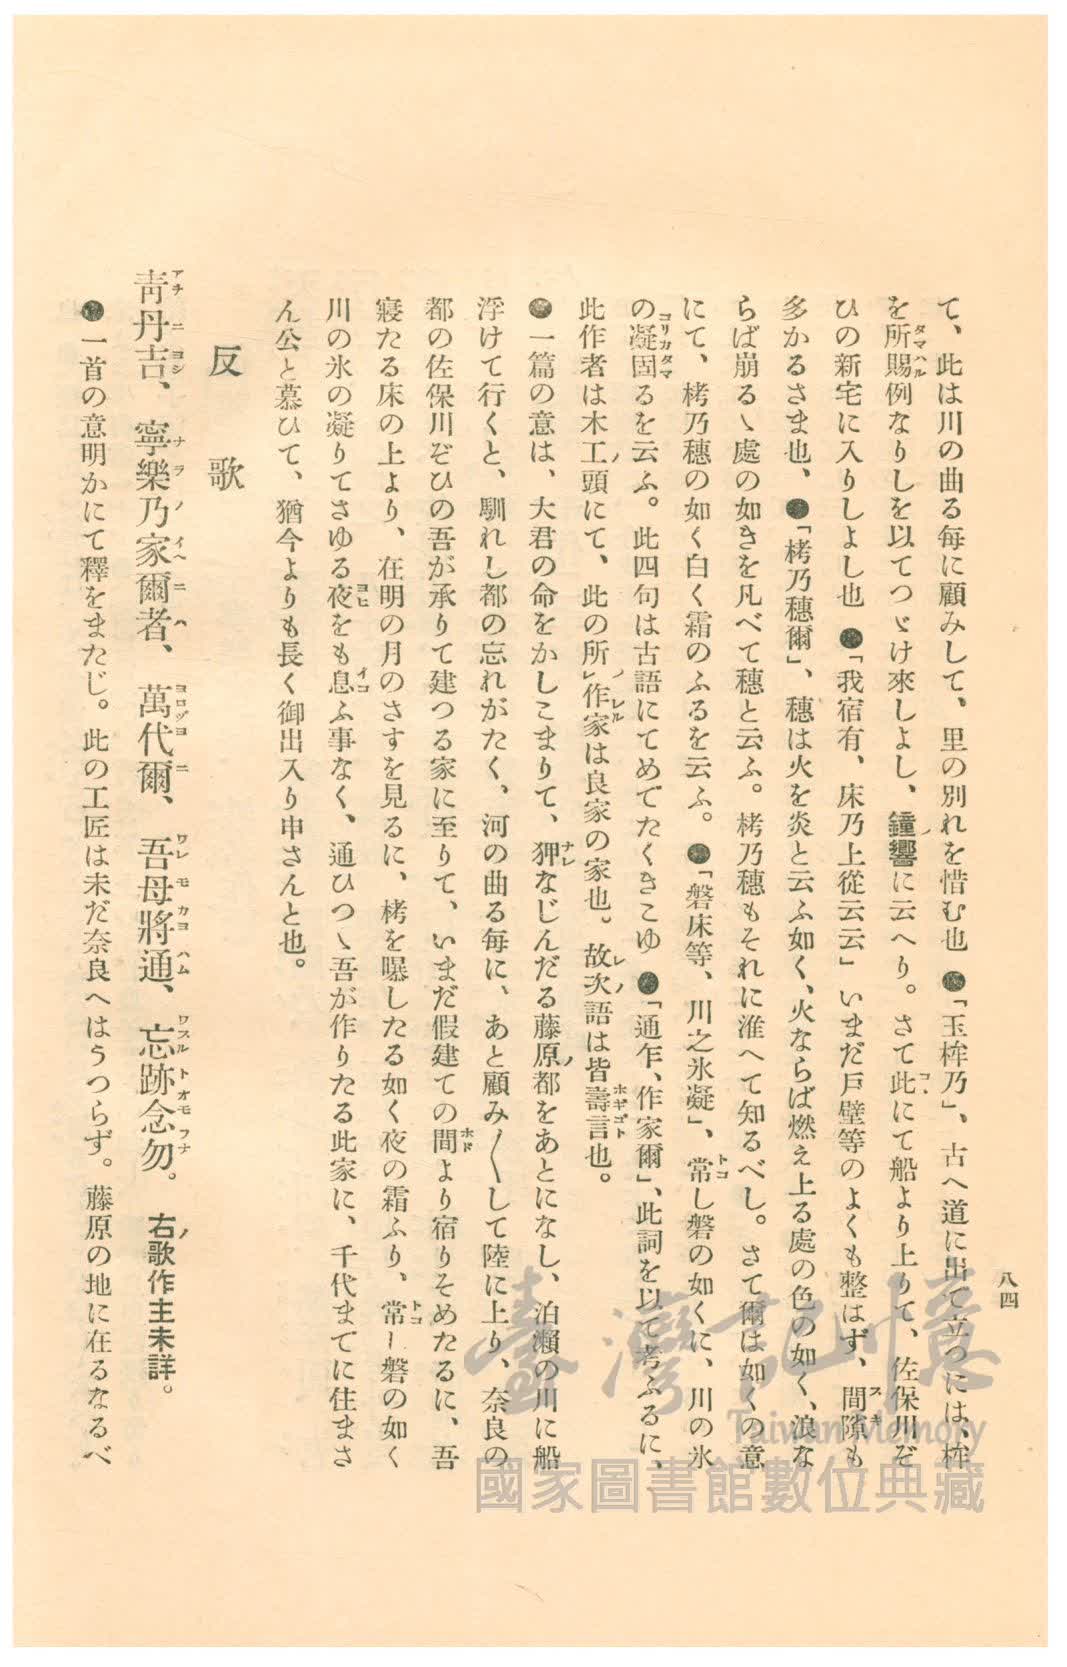 八四
て、此は川の曲る毎に顧みして、里の別れを惜む也●「玉桙乃」、古へ道に出て立つには、桙
を所賜例なりしを以てつゞけ來しよし、鐘響に云へり。さて此にて船より上りて、佐保川ぞ
ひの新宅に入りしよし也●「我宿有、床乃上從云云」いまだ戸壁等のよくも整はず、間隙も
多かるさま也、●「栲乃穗爾」、穗は火を炎と云ふ如く、火ならば燃え上る處の色の如く、浪な
らば崩るゝ處の如きを凡べて穗と云ふ。栲乃穗もそれに准へて知るべし。さて爾は如くの意
にて、栲乃穗の如く白く霜のふるを云ふ。●「磐床等、川之氷凝」、常し磐の如くに、川の氷
の凝固るを云ふ。此四句は古語にてめでたくきこゆ●「通乍、作家爾」、此詞を以て考ふるに、
此作者は木工頭にて、此の所作家は良家の家也。故次語は皆壽言也。
●一篇の意は、大君の命をかしこまりて、狎なじんだる藤原都をあとになし、泊瀨の川に船
浮けて行くと、馴れし都の忘れがたく、河の曲る每に、あと顧み〱して陸に上り、奈良の
都の佐保川ぞひの吾が承りて建つる家に至りて、いまだ假建ての間より宿りそめたるに、吾
寢たる床の上より、在明の月のさすを見るに、栲を曝したる如く夜の霜ふり、常し磐の如く
川の氷の凝りてさゆる夜をも息ふ事なく、通ひつゝ吾が作りたる此家に、千代までに住まさ
ん公と慕ひて、猶今よりも長く御出入り申さんと也。
反歌
靑丹吉、寧樂乃家爾者、萬代爾、吾母將通、忘跡念勿。右歌作主未詳。
●一首の意明かにて釋をまたじ。此の工匠は未だ奈良へはうつらず。藤原の地に在るなるべ
臺灣記憶
Taiwan Memory
國家圖書館數位典藏